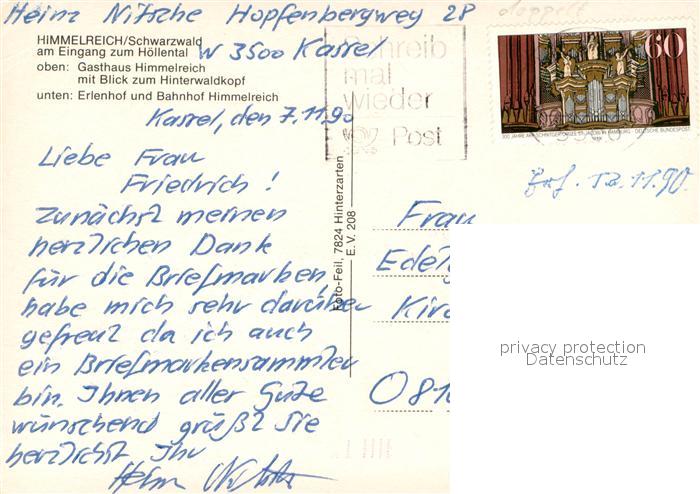 Heinz Nitsche Hopfenbergweg 28
doppelt
HIMMELREICH/Schwarzwald
am Eingang zum Höllental
W 3500 Kassel
oben: Gasthaus Himmelreich
mit Blick zum Hinterwaldkopf
unten: Erlenhof und Bahnhof Himmelreich
Schreib
mal
wieder
Post
60
300 JAHRE ARP-SCHNITGER-ORGEL ST. JACOBI IN HAMBURG · DEUTSCHE BUNDESPOST
Kassel, den 7.11.90
Liebe Frau
Friedrich!
zunächst meinen
herzlichen Dank
für die Briefmarken,
habe mich sehr darüber
gefreut da ich auch
ein Briefmarkensammler
bin. Ihnen aller Gute
wünschend grüßt Sie
herzlichst Ihr
Heinz Nitsche
Foto-Feil, 7824 Hinterzarten
E. V. 208
12.11.90
Frau
Edel
Kir
O 81
privacy protection
Datenschutz